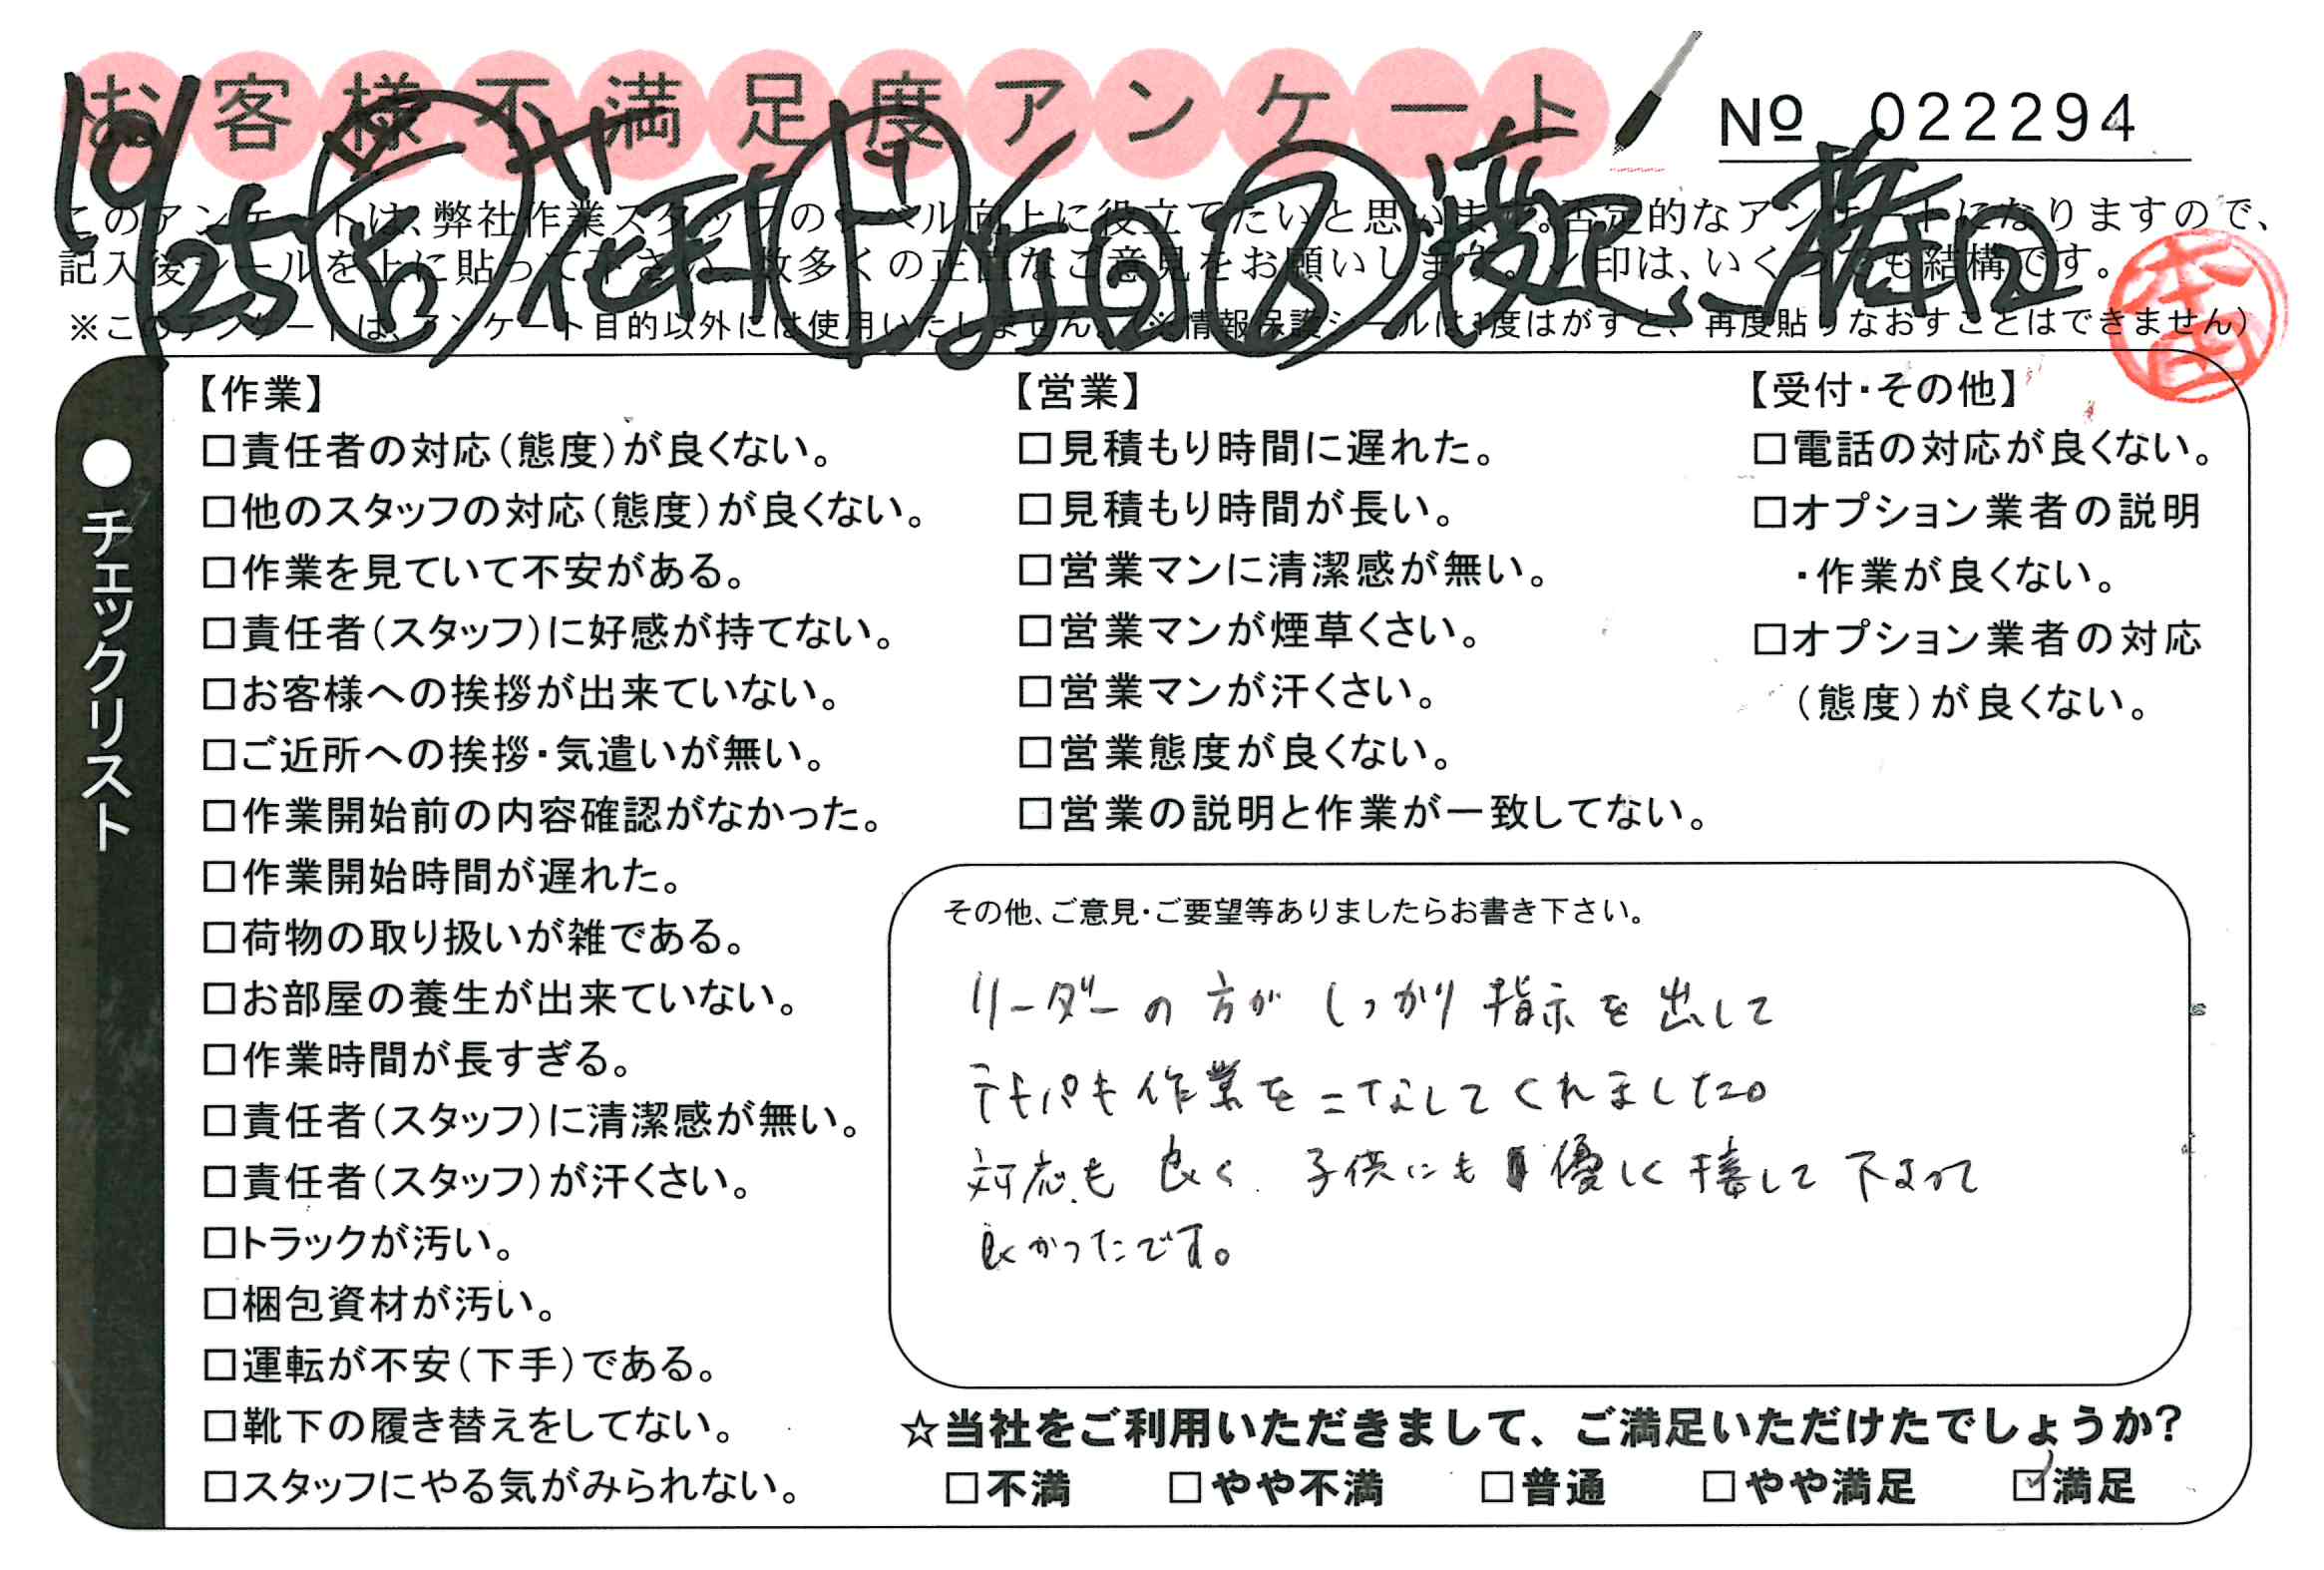 お客様不満足度アンケート
№ 022294
10/25
このアンケートは、弊社作業スタッフのレベル向上に役立てたいと思います。否定的なアンケートになりますので、
記入後シールを上に貼って下さい。数多くの正直なご意見をお願いします。レ印は、いくつでも結構です。
※このアンケートは、アンケート目的以外には使用いたしません。(※情報保護シールは1度はがすと、再度貼りなおすことはできません)
●チェックリスト
【作業】
□責任者の対応(態度)が良くない。
□他のスタッフの対応(態度)が良くない。
□作業を見ていて不安がある。
□責任者(スタッフ)に好感が持てない。
□お客様への挨拶が出来ていない。
□ご近所への挨拶・気遣いが無い。
□作業開始前の内容確認がなかった。
□作業開始時間が遅れた。
□荷物の取り扱いが雑である。
□お部屋の養生が出来ていない。
□作業時間が長すぎる。
□責任者(スタッフ)に清潔感が無い。
□責任者(スタッフ)が汗くさい。
□トラックが汚い。
□梱包資材が汚い。
□運転が不安(下手)である。
□靴下の履き替えをしてない。
□スタッフにやる気がみられない。
【営業】
□見積もり時間に遅れた。
□見積もり時間が長い。
□営業マンに清潔感が無い。
□営業マンが煙草くさい。
□営業マンが汗くさい。
□営業態度が良くない。
□営業の説明と作業が一致してない。
【受付・その他】
□電話の対応が良くない。
□オプション業者の説明
・作業が良くない。
□オプション業者の対応
(態度)が良くない。
その他、ご意見・ご要望等ありましたらお書き下さい。
リーダーの方がしっかり指示を出して
テキパキ作業をこなしてくれました。
対応も良く、子供にも優しく接して下さって
良かったです。
☆当社をご利用いただきまして、ご満足いただけたでしょうか?
□不満 □やや不満 □普通 □やや満足 ☑満足